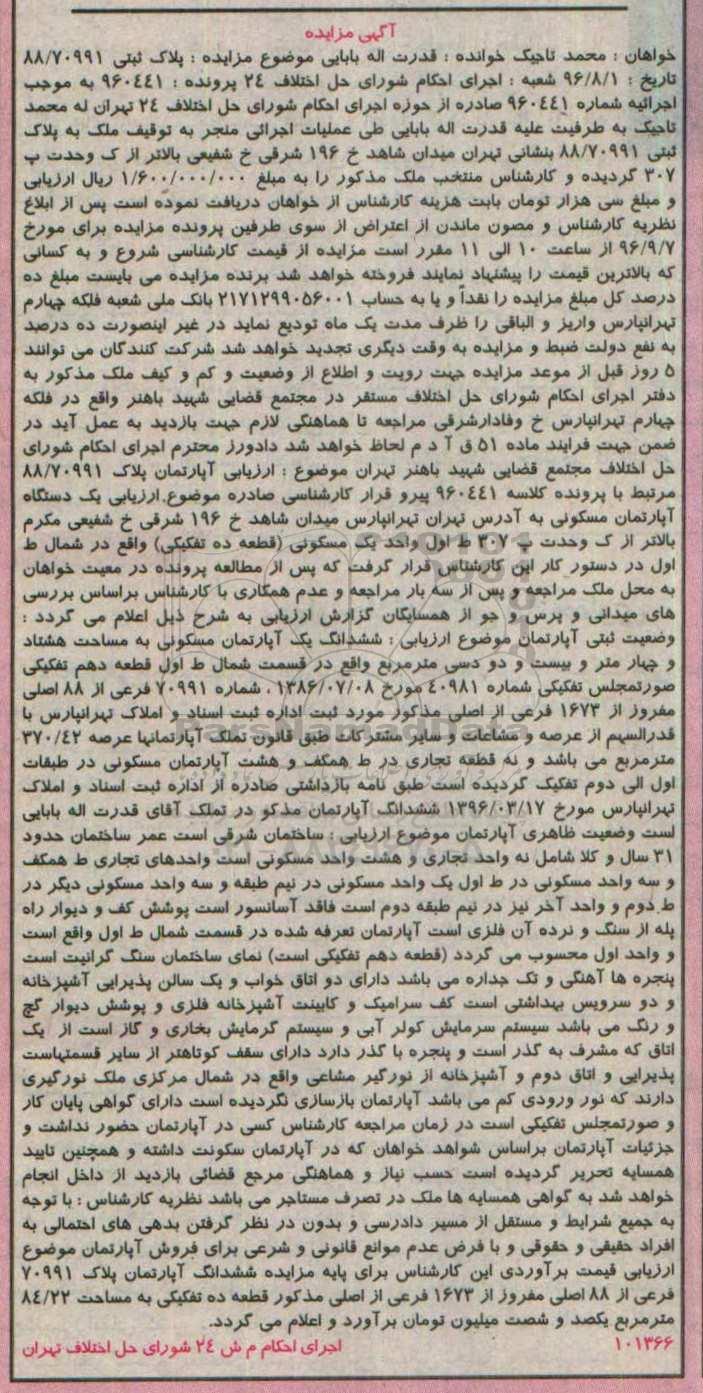 آگهی مزایده
خواهان : محمد تاجیک خوانده : قدرت اله بابایی موضوع مزایده : پلاک ثبتی ۸۸/۷۰۹۹۱
تاریخ : ۹۶/۸/۱ شعبه : اجرای احکام شورای حل اختلاف ۲۴ پرونده : ۹۶۰۴۴۱ به موجب
اجرائیه شماره ۹۶۰۴۴۱ صادره از حوزه اجرای احکام شورای حل اختلاف ۲۴ تهران له محمد
تاجیک به طرفیت علیه قدرت اله بابایی طی عملیات اجرائی منجر به توقیف ملک به پلاک
ثبتی ۸۸/۷۰۹۹۱ بنشانی تهران میدان شاهد خ ۱۹۶ شرقی خ شفیعی بالاتر از ک وحدت پ
۳۰۷ گردیده و کارشناس منتخب ملک مذکور را به مبلغ ۱/۶۰۰/۰۰۰/۰۰۰ ریال ارزیابی
و مبلغ سی هزار تومان بابت هزینه کارشناس از خواهان دریافت نموده است پس از ابلاغ
نظریه کارشناس و مصون ماندن از اعتراض از سوی طرفین پرونده مزایده برای مورخ
۹۶/۹/۷ از ساعت ۱۰ الی ۱۱ مقرر است مزایده از قیمت کارشناسی شروع و به کسانی
که بالاترین قیمت را پیشنهاد نمایند فروخته خواهد شد برنده مزایده می بایست مبلغ ده
درصد کل مبلغ مزایده را نقداً و یا به حساب ۲۱۷۱۲۹۹۰۵۶۰۰۱ بانک ملی شعبه فلکه چهارم
تهرانپارس واریز و الباقی را ظرف مدت یک ماه تودیع نماید در غیر اینصورت ده درصد
به نفع دولت ضبط و مزایده به وقت دیگری تجدید خواهد شد شرکت کنندگان می توانند
۵ روز قبل از موعد مزایده جهت رویت و اطلاع از وضعیت و کم و کیف ملک مذکور به
دفتر اجرای احکام شورای حل اختلاف مستقر در مجتمع قضایی شهید باهنر واقع در فلکه
چهارم تهرانپارس خ وفادارشرقی مراجعه تا هماهنگی لازم جهت بازدید به عمل آید در
ضمن جهت فرایند ماده ۵۱ ق آ د م لحاظ خواهد شد دادورز محترم اجرای احکام شورای
حل اختلاف مجتمع قضایی شهید باهنر تهران موضوع : ارزیابی آپارتمان پلاک ۸۸/۷۰۹۹۱
مرتبط با پرونده کلاسه ۹۶۰۴۴۱ پیرو قرار کارشناسی صادره موضوع ارزیابی یک دستگاه
آپارتمان مسکونی به آدرس تهران تهرانپارس میدان شاهد خ ۱۹۶ شرقی خ شفیعی مکرم
بالاتر از ک وحدت پ ۳۰۷ ط اول واحد یک مسکونی (قطعه ده تفکیکی) واقع در شمال ط
اول در دستور کار این کارشناس قرار گرفت که پس از مطالعه پرونده در معیت خواهان
به محل ملک مراجعه و پس از سه بار مراجعه و عدم همکاری با کارشناس براساس بررسی
های میدانی و پرس و جو از همسایگان گزارش ارزیابی به شرح ذیل اعلام می گردد :
وضعیت ثبتی آپارتمان موضوع ارزیابی : ششدانگ یک آپارتمان مسکونی به مساحت هشتاد
و چهار متر و بیست و دو دسی مترمربع واقع در قسمت شمال ط اول قطعه دهم تفکیکی
صورتمجلس تفکیکی شماره ۴۰۹۸۱ مورخ ۱۳۸۶/۰۷/۰۸ ، شماره ۷۰۹۹۱ فرعی از ۸۸ اصلی
مفروز از ۱۶۷۳ فرعی از اصلی مذکور مورد ثبت اداره ثبت اسناد و املاک تهرانپارس با
قدرالسهم از عرصه و مشاعات و سایر مشترکات طبق قانون تملک آپارتمانها عرصه ۳۷۰/۴۲
مترمربع می باشد و نه قطعه تجاری در ط همکف و هشت آپارتمان مسکونی در طبقات
اول الی دوم تفکیک گردیده است طبق نامه بازداشتی صادره از اداره ثبت اسناد و املاک
تهرانپارس مورخ ۱۳۹۶/۰۳/۱۷ ششدانگ آپارتمان مذکو در تملک آقای قدرت اله بابایی
است وضعیت ظاهری آپارتمان موضوع ارزیابی : ساختمان شرقی است عمر ساختمان حدود
۳۱ سال و کلا شامل نه واحد تجاری و هشت واحد مسکونی است واحدهای تجاری ط همکف
و سه واحد مسکونی در ط اول یک واحد مسکونی در نیم طبقه و سه واحد مسکونی دیگر در
ط دوم و واحد آخر نیز در نیم طبقه دوم است فاقد آسانسور است پوشش کف و دیوار راه
پله از سنگ و نرده آن فلزی است آپارتمان تعرفه شده در قسمت شمال ط اول واقع است
و واحد اول محسوب می گردد (قطعه دهم تفکیکی است) نمای ساختمان سنگ گرانیت است
پنجره ها آهنگی و تک جداره می باشد دارای دو اتاق خواب و یک سالن پذیرایی آشپزخانه
و دو سرویس بهداشتی است کف سرامیک و کابینت آشپزخانه فلزی و پوشش دیوار گچ
و رنگ می باشد سیستم سرمایش کولر آبی و سیستم گرمایش بخاری و گاز است از یک
اتاق که مشرف به گذر است و پنجره با گذر دارد دارای سقف کوتاهتر از سایر قسمتهاست
پذیرایی و اتاق دوم و آشپزخانه از نورگیر مشاعی واقع در شمال مرکزی ملک نورگیری
دارند که نور ورودی کم می باشد آپارتمان بازسازی نگردیده است دارای گواهی پایان کار
و صورتمجلس تفکیکی است در زمان مراجعه کارشناس کسی در آپارتمان حضور نداشت و
جزئیات آپارتمان براساس شواهد خواهان که در آپارتمان سکونت داشته و همچنین تایید
همسایه تحریر گردیده است حسب نیاز و هماهنگی مرجع قضائی بازدید از داخل انجام
خواهد شد به گواهی همسایه ها ملک در تصرف مستاجر می باشد نظریه کارشناس : با توجه
به جمیع شرایط و مستقل از مسیر دادرسی و بدون در نظر گرفتن بدهی های احتمالی به
افراد حقیقی و حقوقی و با فرض عدم موانع قانونی و شرعی برای فروش آپارتمان موضوع
ارزیابی قیمت برآوردی این کارشناس برای پایه مزایده ششدانگ آپارتمان پلاک ۷۰۹۹۱
فرعی از ۸۸ اصلی مفروز از ۱۶۷۳ فرعی از اصلی مذکور قطعه ده تفکیکی به مساحت ۸۴/۲۲
مترمربع یکصد و شصت میلیون تومان برآورد و اعلام می گردد.
۱۰۱۳۶۶ اجرای احکام م ش ۲۴ شورای حل اختلاف تهران